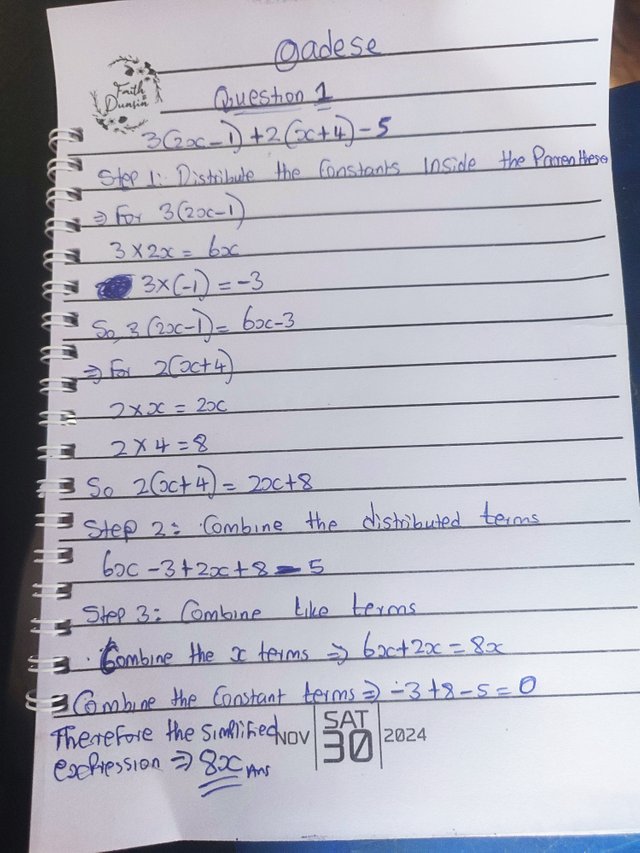 Oadese
Faith
Dunsin
Question 1
3(2x-1)+2(x+4)-5
Step 1: Distribute the Constants Inside the Parrenthese
⇒ For 3(2x-1)
3×2x = 6x
3×(-1) = -3
So, 3(2x-1) = 6x-3
⇒ For 2(x+4)
2×x = 2x
2×4 = 8
So 2(x+4) = 2x+8
Step 2: Combine the distributed terms
6x -3+2x+8-5
Step 3: Combine like terms
· Combine the x terms ⇒ 6x+2x = 8x
Combine the Constant terms ⇒ -3+8-5=0
Therefore the simplified
expression ⇒ 8x Ans
NOV SAT 30 2024